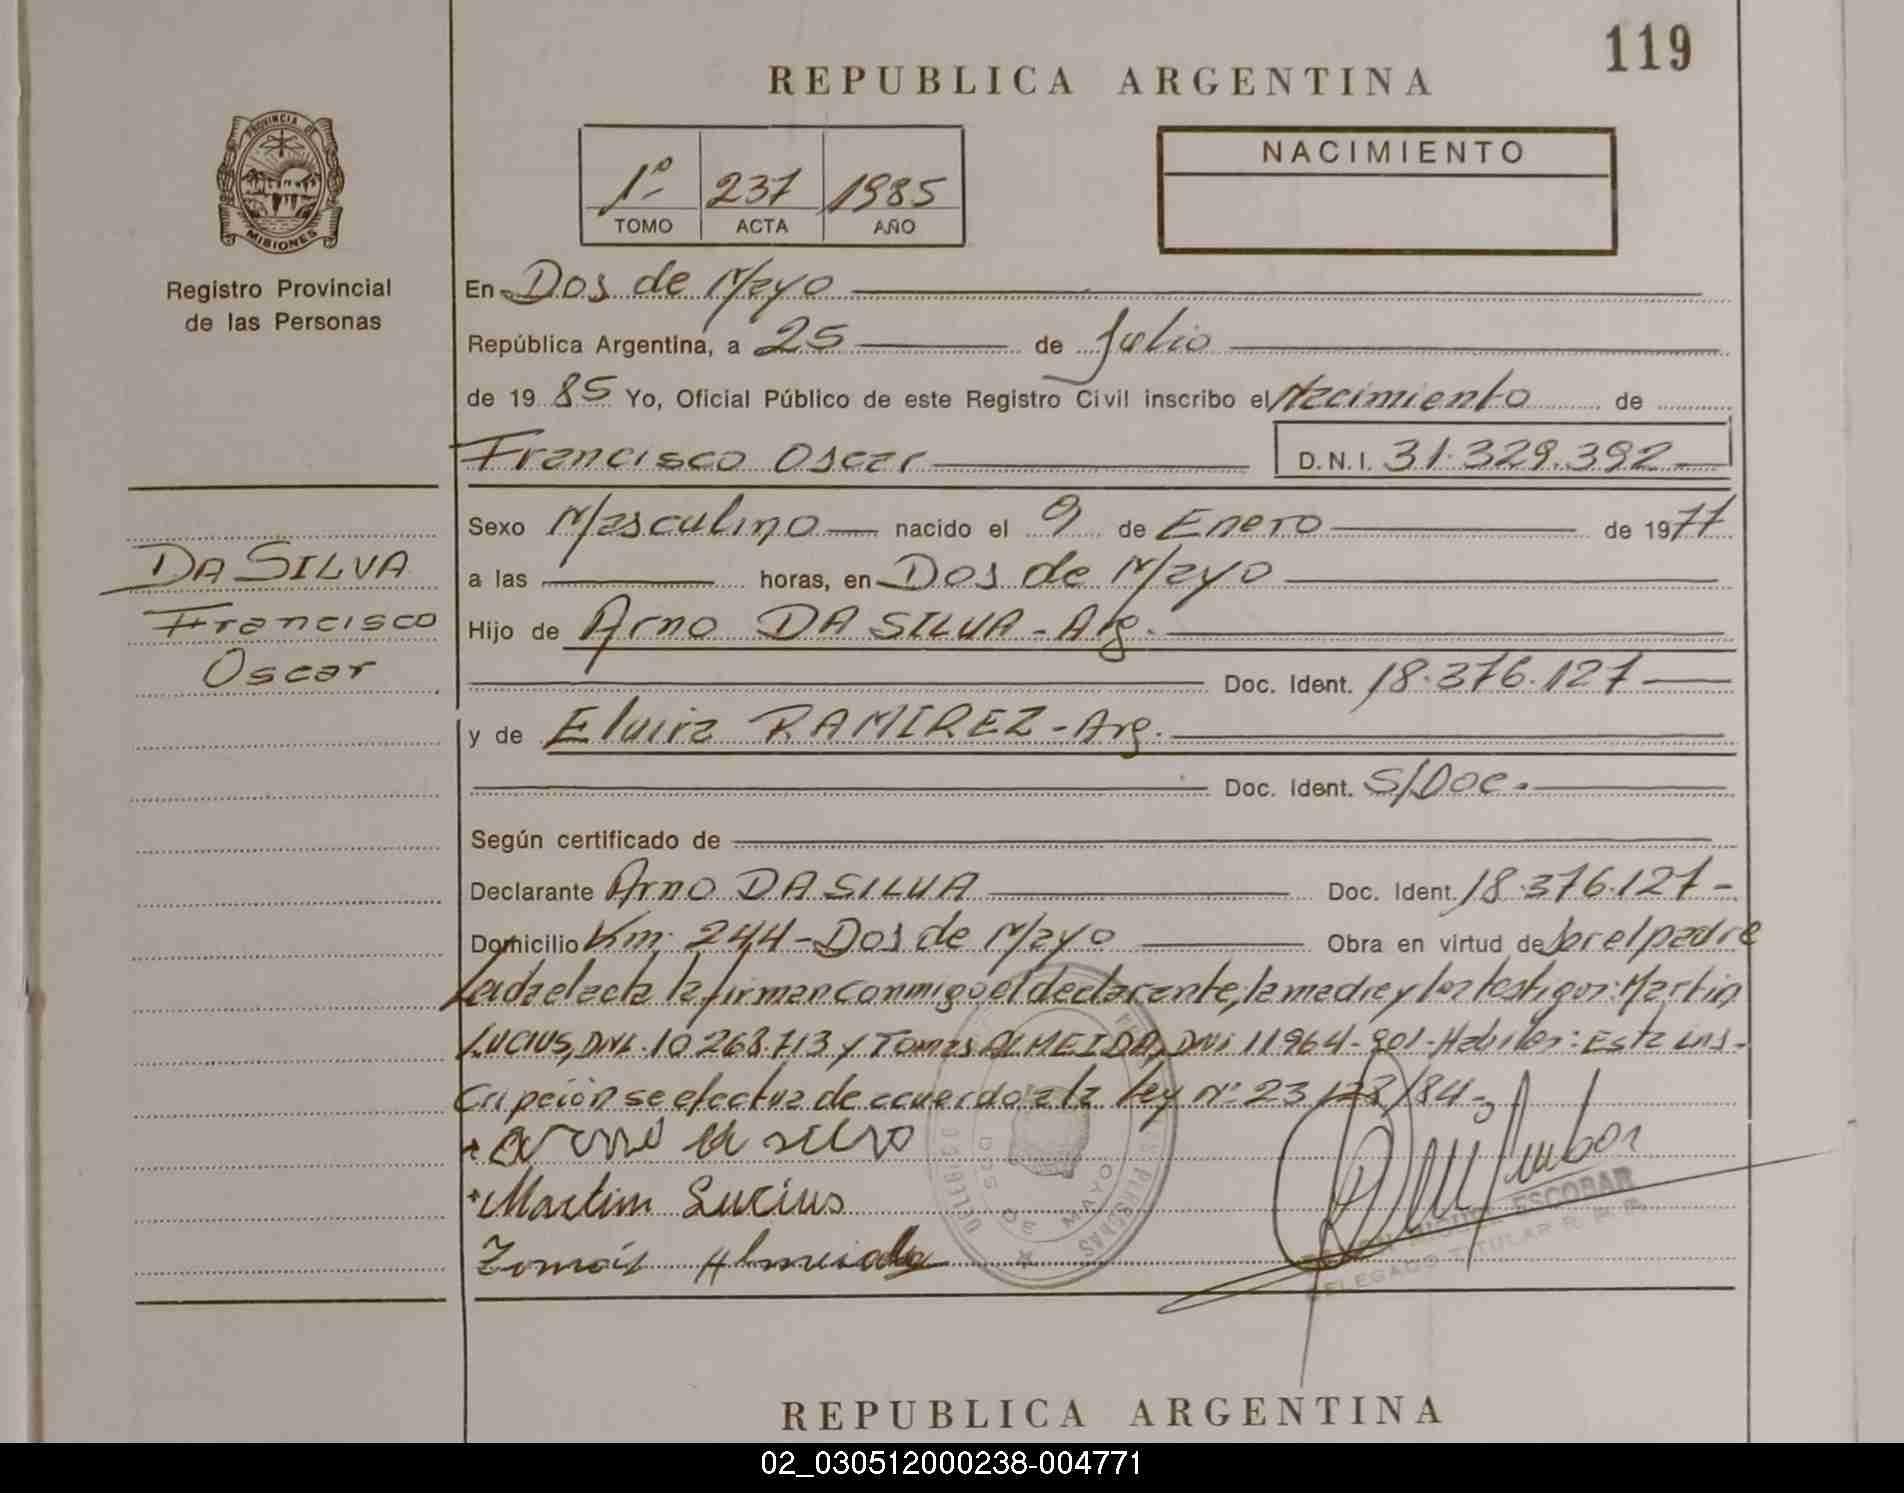 119
REPUBLICA ARGENTINA
PROVINCIA DE
MISIONES
Registro Provincial
de las Personas
1º 237 1985
TOMO ACTA AÑO
NACIMIENTO
En Dos de Mayo
República Argentina, a 25 de Julio
de 1985 Yo, Oficial Público de este Registro Civil inscribo el Nacimiento de
Francisco Oscar D.N.I. 31.329.392
DA SILVA
Francisco
Oscar
Sexo Masculino nacido el 9 de Enero de 1977
a las horas, en Dos de Mayo
Hijo de Arno DA SILVA - Arg.
Doc. Ident. 18.376.127
y de Elvira RAMIREZ - Arg.
Doc. Ident. S/Doc.
Según certificado de
Declarante Arno DA SILVA Doc. Ident. 18.376.127-
Domicilio Km. 244 - Dos de Mayo Obra en virtud de Ser el padre
Leida el acta la firman conmigo el declarante, la madre y los testigos: Martin
LUCIUS, DNI. 10268.713 y Tomas ALMEIDA, DNI 11964-901 - Habiles: Esta ins-
cripción se efectua de acuerdo a la ley nº 23128/84-
Martim Lucius
Tomás Almeida
DOS DE MAYO
PERSONAS
ESCOBAR
DELEGADO TITULAR R. P. P.
REPUBLICA ARGENTINA
02_030512000238-004771